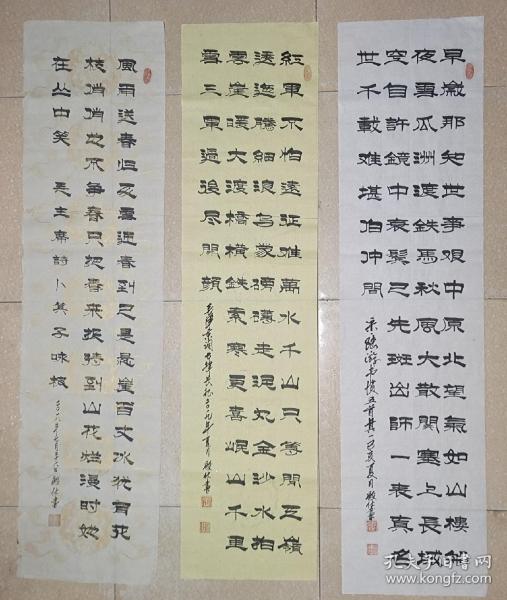 早歲那知世事艰中原北望氣如山樓船
夜雪瓜洲渡鐵馬秋風大散關塞上長城
空自許鏡中衰鬓已先斑出师一表真名
世千載难堪伯仲間
宋陸游书愤五首其一己亥夏月
紅軍不怕遠征难萬水千山只等閒五嶺
逶迤騰細浪烏蒙磅礴走泥丸金沙水拍
雲崖暖大渡橋横鉄索寒更喜岷山千里
雪三軍過後尽開顔
風雨送春归飛雪迎春到已是悬崖百丈冰犹有花
枝俏俏也不争春只把春来报待到山花烂漫时她
在丛中笑 毛主席詩卜算子咏梅
孔夫子旧书网
www.kongfz.com